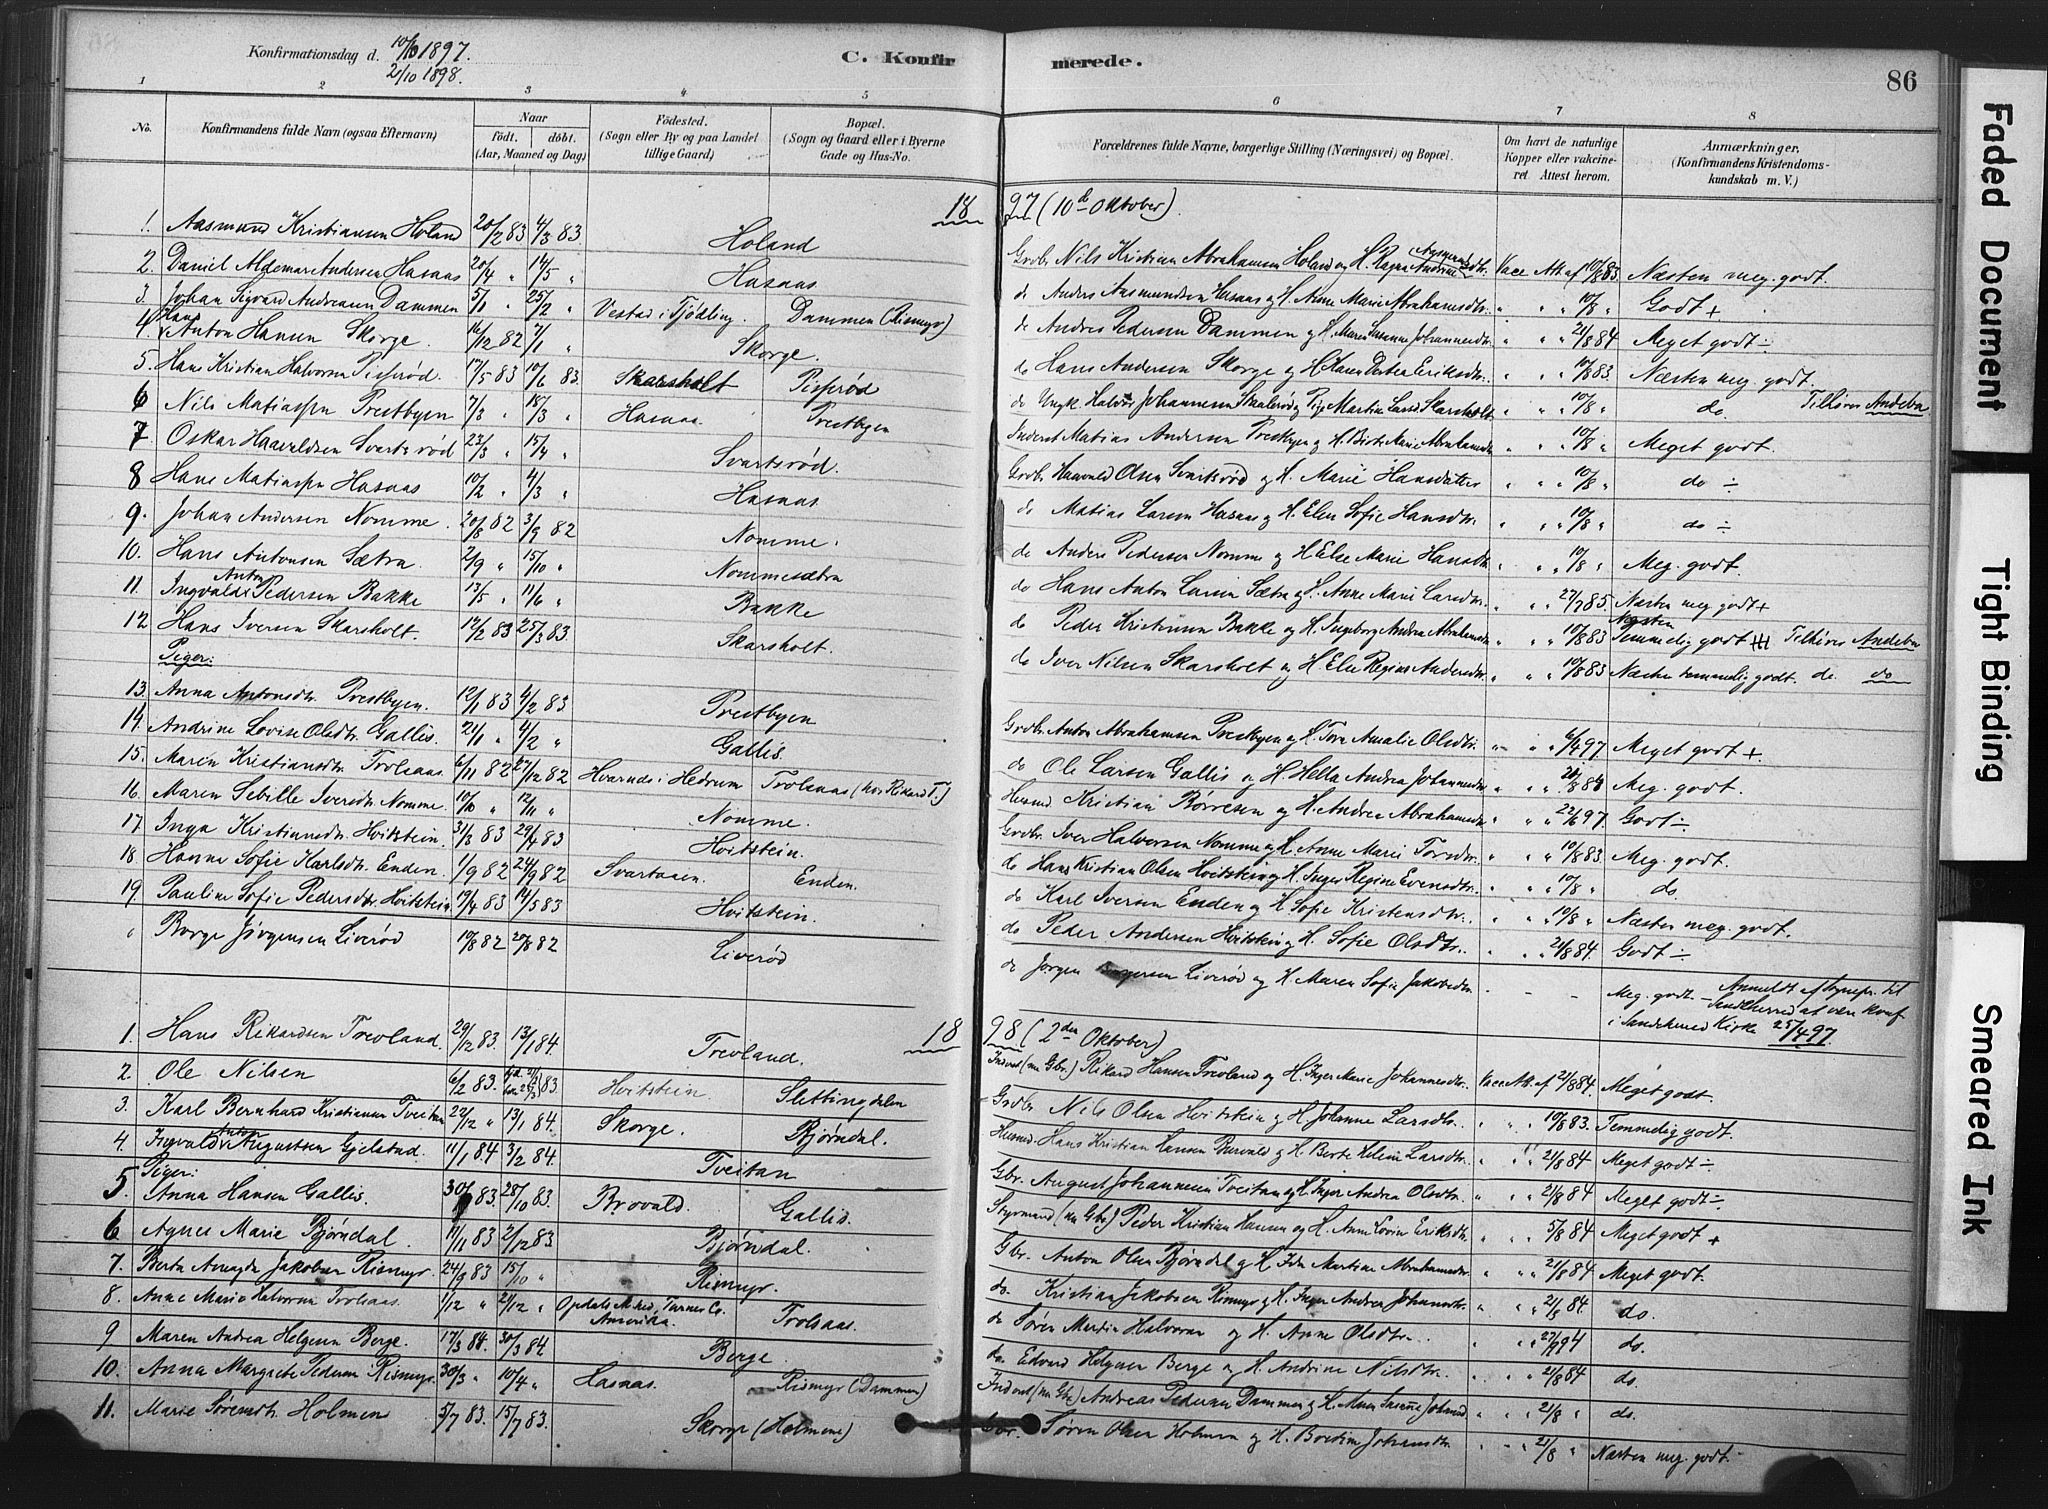 Konfirmationsdag d. 10/10 1897.
2/10 1898.
C. Konfirmerede.
86
1 2 3 4 5 6 7 8
No.
Konfirmandens fulde Navn (ogsaa Efternavn)
Naar
født. døbt.
(Aar, Maaned og Dag)
Fødested.
(Sogn eller By og paa Landet
tillige Gaard)
Bopæl.
(Sogn og Gaard eller i Byerne
Gade og Hus-No.
Forældrenes fulde Navne, borgerlige Stilling (Næringsvei) og Bopæl.
Om havt de naturlige
Kopper eller vakcine-
ret Attest herom.
Anmærkninger,
(Konfirmandens Kristendoms-
kundskab m. V.)
1897 (10de Oktober)
1. Aasmund Kristiansen Holand 20/2 83 4/3 83 Holand Grdbr. Nils Kristian Abrahamsen Holand og H. Vacc. Att. af 10/8 83. Næsten meg. godt.
2. Daniel Aldemar Andersen Hasaas 20/4 " 14/5 " Hasaas do Anders Aasmundsen Hasaas og H. Anne Marie Abrahamsdtr. " " " 10/8 " Godt +
3. Johan Sigvard Andreasen Dammen 5/1 " 25/2 " Vestad i Tjødling. Dammen (Rismyr) do Andreas Pedersen Dammen og H. Maren Susanne Johannesdtr. " " " 21/8 84 Meget godt ÷
4. Hans Anton Hansen Skorge. 16/12 82 7/1 " Skorge. do Hans Andersen Skorge og H. Karen Dortea Eriksdtr. " " " 10/8 83. Næsten meg. godt.
5. Hans Kristian Halvorsen Pisserød. 17/5 83 10/6 83. Skarsholt Pisserød do Ungk. Halvor Johannesen Skalerød og Pige Martin Larsd. Skarsholt " " " 10/8 " do Tilhører Andebu
6 Nils Matiassen Prestbyen 7/3 " 18/3 " Hasaas. Prestbyen Inderst Matias Andersen Prestbyen og H. Berte Marie Abrahamsdtr. " " " 10/8 " Meget godt.
7 Oskar Haavaldsen Svartsrød 23/3 " 15/4 " Svartsrød. Grdbr. Haavald Olsen Svartsrød og H. Marie Hansdatter " " " 10/8 " do ÷
8 Hans Matiassen Hasaas 10/2 " 4/3 " Hasaas do Matias Larsen Hasaas og H. Elen Sofie Hansdtr. " " " 10/8 " do ÷
9. Johan Andersen Nomme. 20/8 82 3/9 82 Nomme. do Anders Pedersen Nomme og H. Else Marie Hansdtr. " " " 10/8 " Meg. godt.
10. Hans Antonsen Sætra. 2/9 " 15/10 " Nommesætra do Hans Anton Larsen Sætra og H. Anne Marie Larsdtr. " " " 27/7 85. Næsten meg. godt +
11. Ingvald Anton Pedersen Bakke 13/5 " 11/6 " Bakke do Peder Kristensen Bakke og H. Ingeborg Andrea Abrahamsdtr. " " " 10/8 83 Næsten Temmelig godt Tilhører Andebu
12 Hans Iversen Skarsholt. 12/2 83 25/3 83 Skarsholt. do Iver Nilsen Skarsholt og H. Else Regine Andersdtr. " " " 10/8 83 Næsten temmelig godt. do. do
Piger:
13. Anna Antonsdtr. Prestbyen. 12/1 83 4/2 83 Prestbyen Grdbr. Anton Abrahamsen Prestbyen og H. Tora Amalie Olsdtr. " " " 6/4 97. Meget godt +
14. Andrine Lovise Olsdtr. Gallis. 21/1 " 4/2 " Gallis. do Ole Larsen Gallis og H. Hella Andrea Johannesdtr. " " " 20/8 84 Meg. godt.
15. Maren Kristiansdtr. Trolsaas. 6/11 82 27/12 82 Hvarnes i Hedrum Trolsaas (hos Rikard T.) Husmd. Kristian Børresen og H. Andrea Abrahamsdtr. " " " 22/6 97. Godt ÷
16. Maren Sebille Iversdtr. Nomme. 10/10 " 12/11 " Nomme. Grdbr. Iver Halvorsen Nomme og H. Anne Marie Torsdtr. " " " 10/8 83. Meg. godt.
17. Inga Kristiansdtr. Hvitstein. 31/3 83 29/4 83 Hvitstein. do Hans Kristian Olsen Hvitstein og H. Inger Regine Evensdtr. " " " 10/8 " do
18. Hanne Sofie Karlsdtr. Enden. 1/9 82 24/9 82 Svartaaen. Enden. do Karl Iversen Enden og H. Sofie Kristensdtr. " " " 10/8 " Næsten meg. godt.
19. Pauline Sofie Pedersdtr. Hvitstein. 19/4 83 14/5 83 Hvitstein. do Peder Andersen Hvitstein og H. Sofie Olsdtr. " " " 21/8 84. Godt ÷
" Borge Jørgensen Liverød 10/8 82 20/8 82 Liverød do Jørgen Liverød og H. Maren Sofie Jakobsdtr. - - - Meg. godt. - Anmeldt af Sognepr. til
Sandeherred at være konf.
i Sandeherred Kirke 25/4 97
1898 (2den Oktober)
1. Hans Rikardsen Trevland. 29/12 83. 13/1 84. Trevland. Inderst (nu Gbr.) Rikard Hansen Trevland og H. Inger Marie Johannesdtr. Vacc. Att. af 21/8 84. Meget godt.
2. Ole Nilsen 6/2 83. Hvitstein. Slettingdalen Grdbr. Nils Olsen Hvitstein og H. Johanne Larsdtr. " " " 10/8 83. Temmelig godt.
3. Karl Bernhard Kristiansen Tveitan 22/12 " 13/1 84. Skorge. Bjørndal. Husmd. Hans Kristian Hansen og H. Berte Helene Larsdtr. " " " 21/8 84 Meget godt ÷
4. Ingvald Anton Augustsen Gjelstad. 11/1 84 3/2 84. Tveitan Gbr. August Johannesen Tveitan og H. Inger Andrea Olsdtr. " " " 21/8 84 Meget godt ÷
Piger:
5. Anna Hansen Gallis. 30/9 83. 28/10 83. Brovald. Gallis. Styrmand (nu Gbr.) Peder Kristian Hansen og H. Anne Lovise Eriksdtr. " " " 5/8 84 Meget godt +
6 Agnes Marie Bjørndal. 11/11 83 2/12 83 Bjørndal. Gbr. Anton Olsen Bjørndal og H. Ida Martine Abrahamsdtr. " " " 21/8 84 Meget godt.
7. Berta Amagda Jakobsen Rismyr. 24/9 83 15/10 " Rismyr. do. Kristian Jakobsen Rismyr og H. Inger Andrea Johansdtr. " " " 21/8 84 do.
8. Anne Marie Halvorsen Trolsaas. 1/12 " 21/12 " Opdals Mhed, Turner Co. Amerika. Trolsaas. do Søren Martin Halvorsen og H. Anne Olsdtr. " " " 27/9 94 do.
9 Maren Andrea Helgesen Berge. 17/3 84. 30/3 84 Berge. do. Edvard Helgesen Berge og H. Andrine Nilsdtr. " " " 21/8 84 do.
10. Anna Margrete Pedersen Rismyr. 30/3 " 10/4 " Hasaas. Rismyr (Dammen) Inderst (nu Gbr.) Andreas Pedersen Dammen og H. Maren Susanne Johansd. " " " 21/8 " do.
11. Marie Sørensdtr. Holmen 5/7 83. 15/7 83. Skorge (Holmene) Gbr. Søren Olsen Holmen og H. Bredine Johansdtr. " " " 21/8 " Næsten meg. godt.
Faded Document
Tight Binding
Smeared Ink